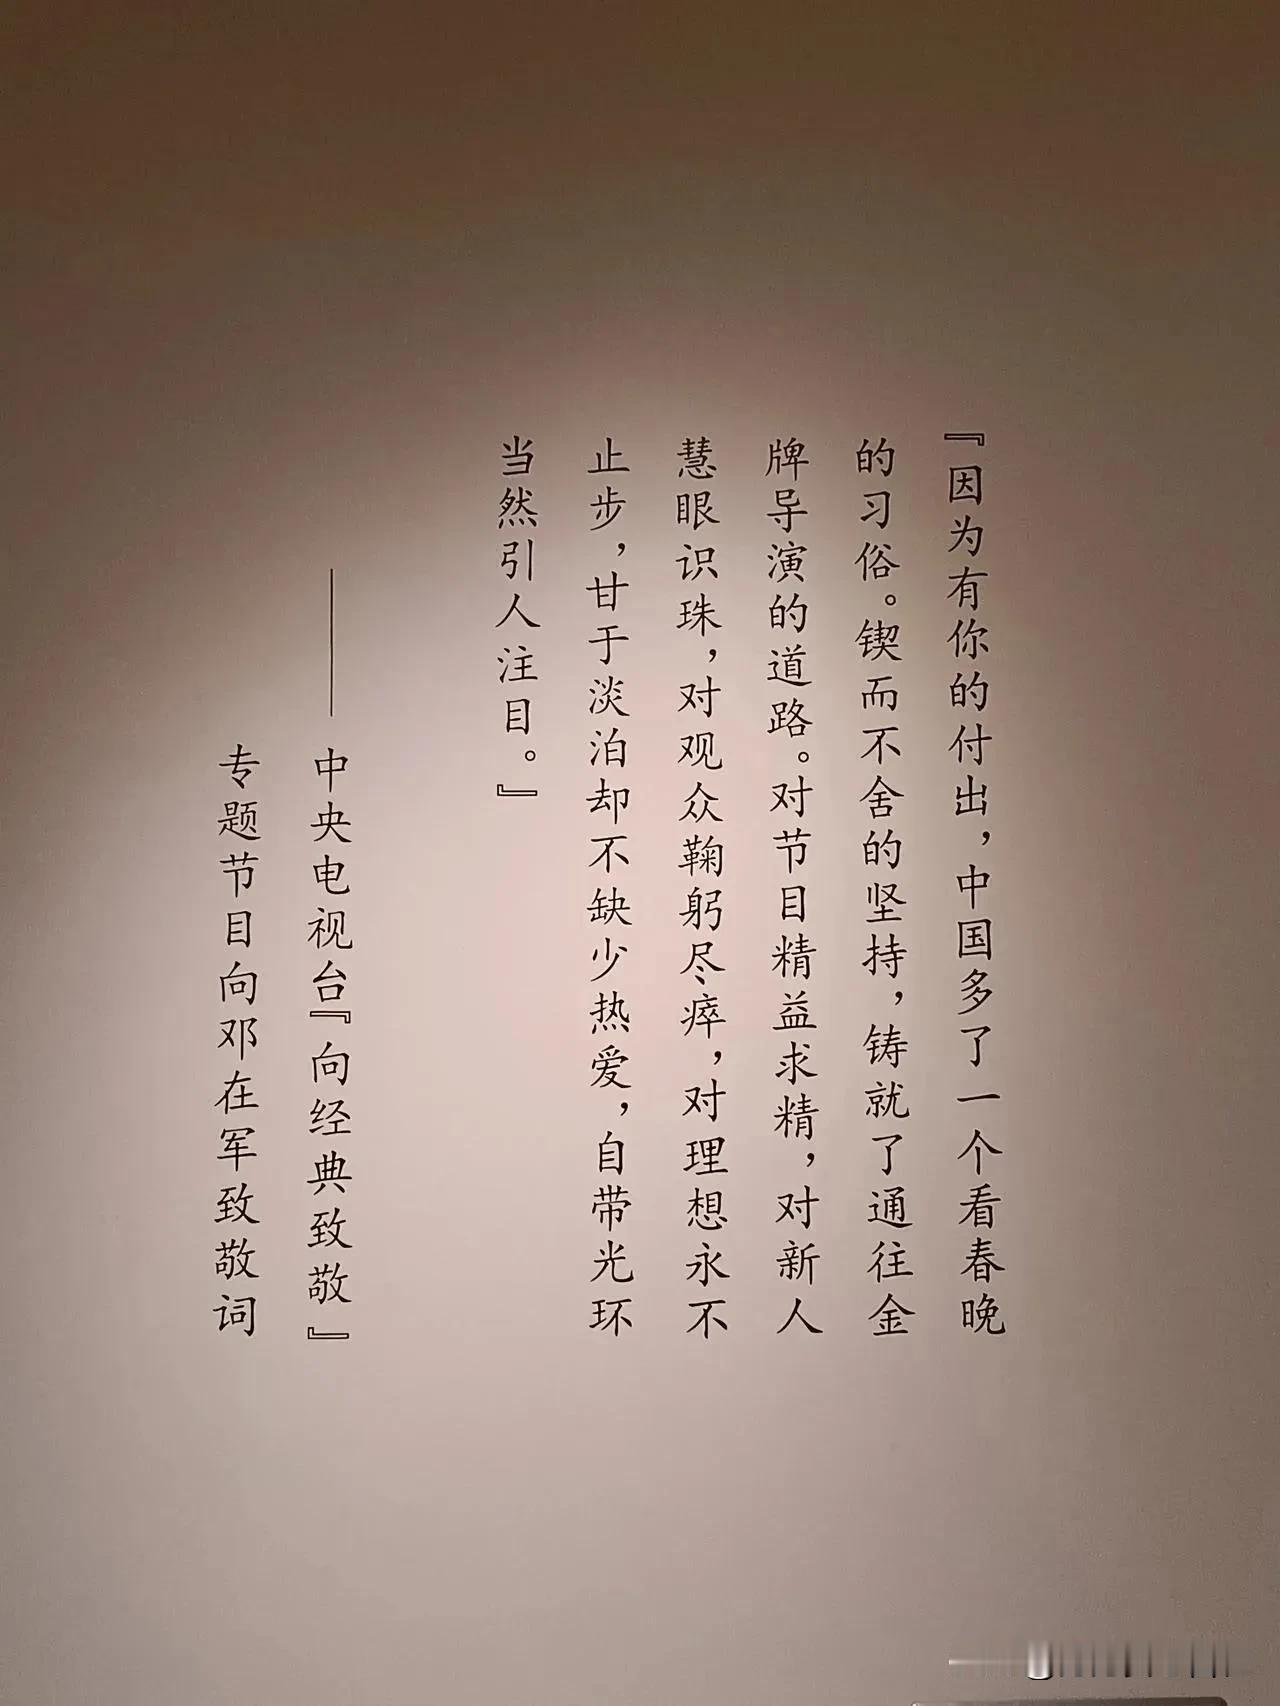 『因为有你的付出，中国多了一个看春晚
的习俗。锲而不舍的坚持，铸就了通往金
牌导演的道路。对节目精益求精，对新人
慧眼识珠，对观众鞠躬尽瘁，对理想永不
止步，甘于淡泊却不缺少热爱，自带光环
当然引人注目。』
——中央电视台『向经典致敬』
专题节目向邓在军致敬词